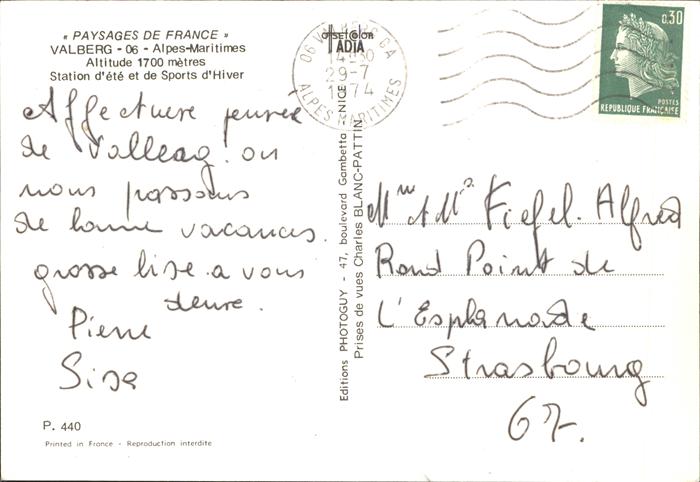 « PAYSAGES DE FRANCE »
VALBERG - 06 - Alpes-Maritimes
Altitude 1700 mètres
Station d'été et de Sports d'Hiver
Affectuere pensée
de Valleag. ou
nous passons
de bonne vacances.
grosse bise a vous
deure.
Pierre
Sisa
P. 440
Printed in France - Reproduction interdite
Editions PHOTOGUY - 47, boulevard Gambetta NICE
Prises de vues Charles BLANC-PATTIN
offset color
TADIA
06 VALBERG GA
14-30
29-7
1974
ALPES MARITIMES
0,30
POSTES
REPUBLIQUE FRANÇAISE
Mme et Mr. Fiefel. Alfred
Rond Point de
L'Esplanade
Strasbourg
67.